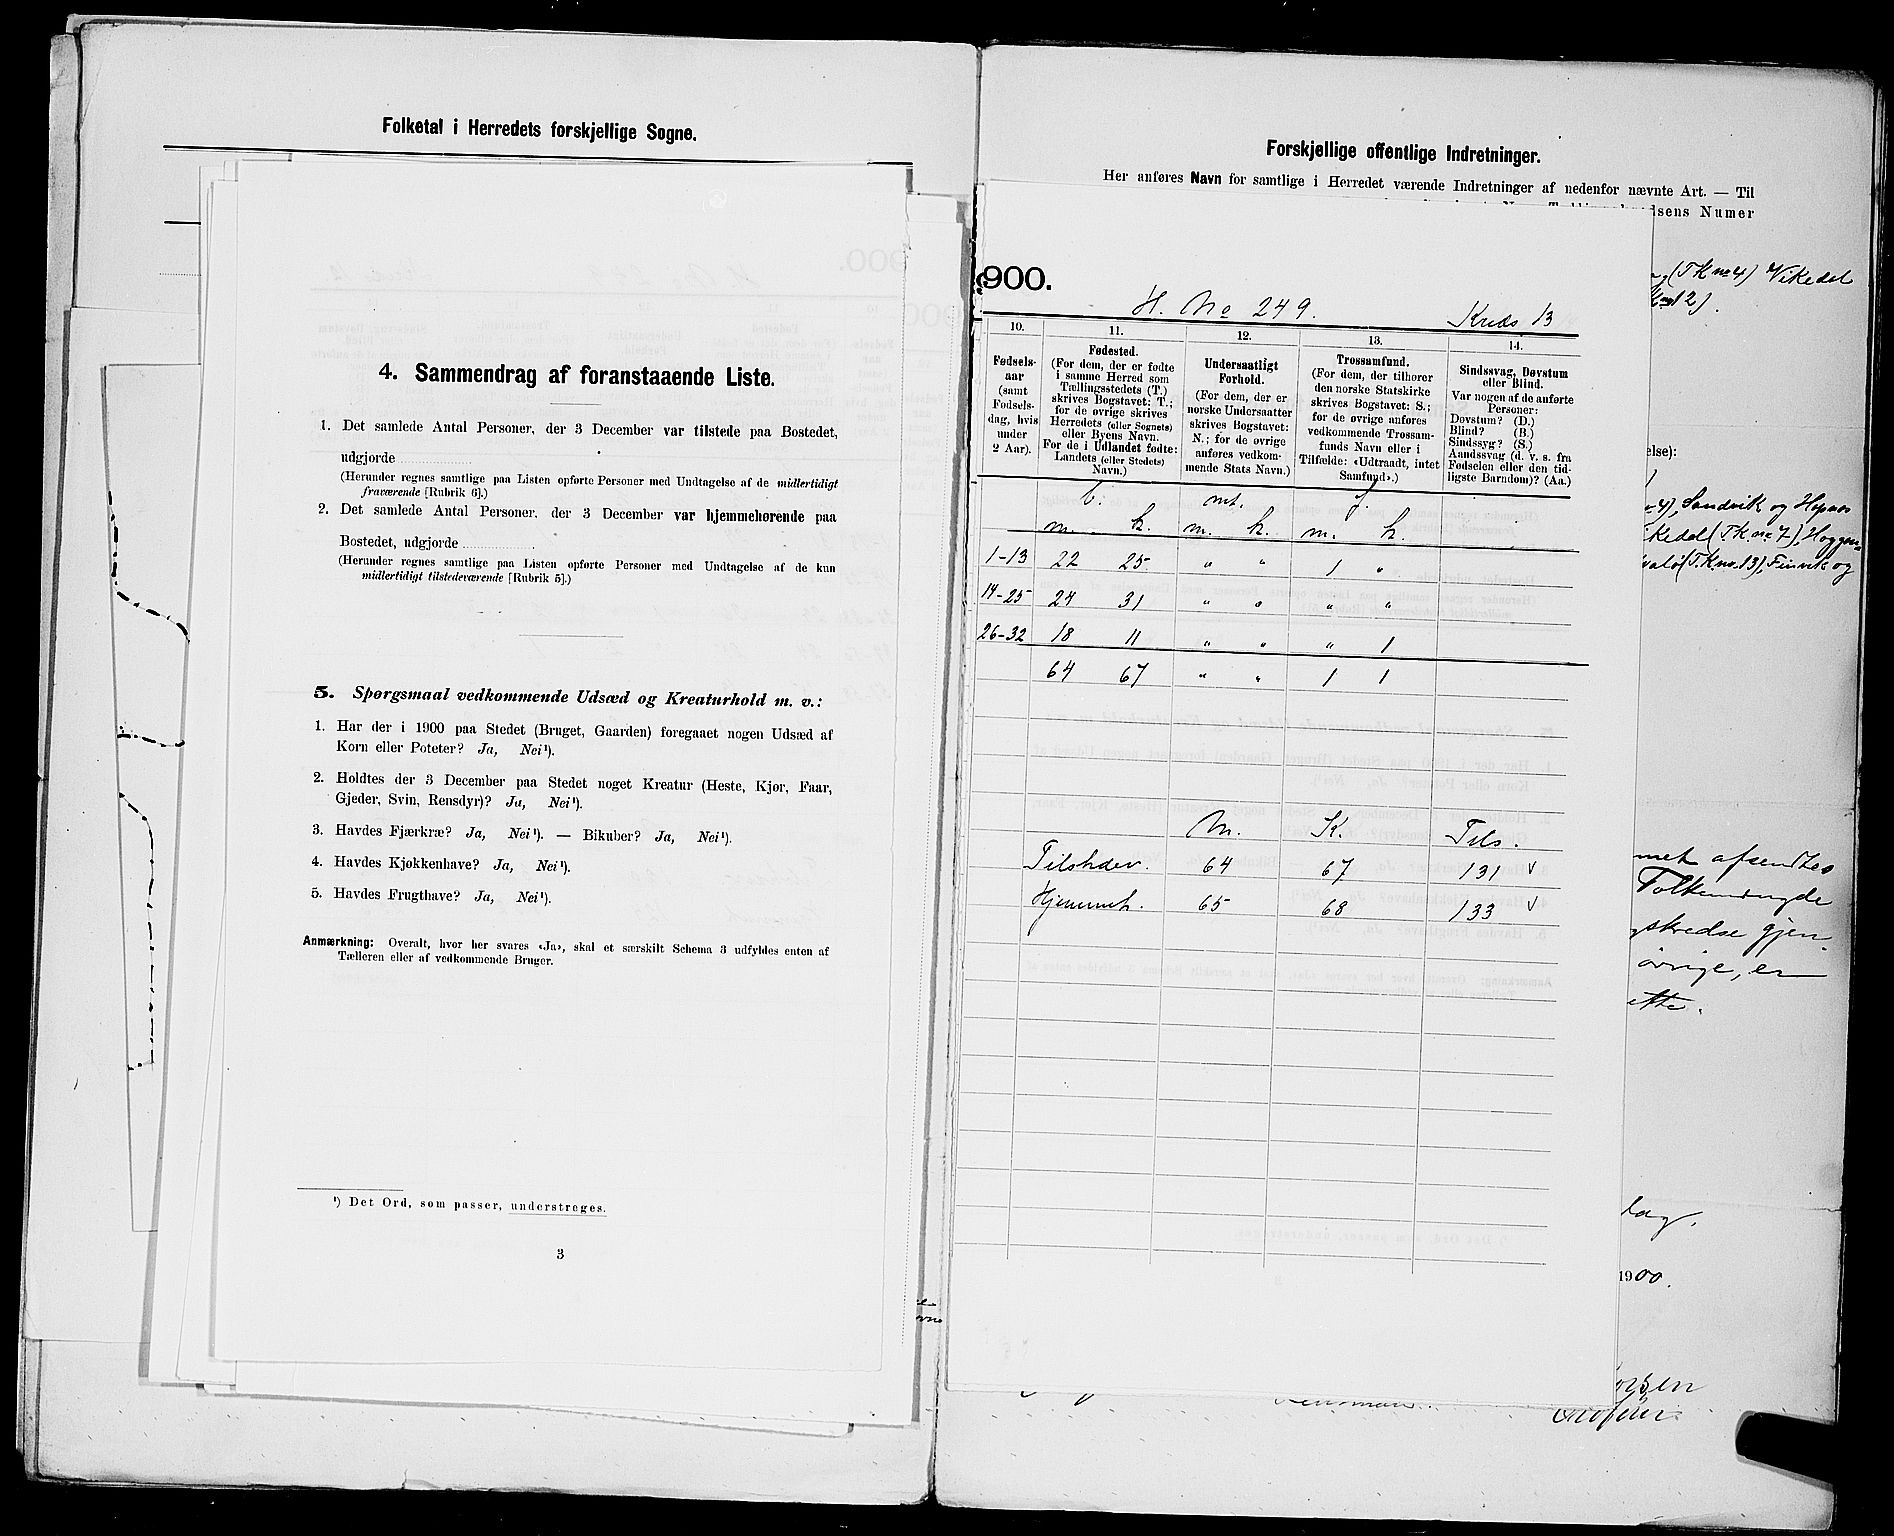 Folketal i Herredets forskjellige Sogne.
4. Sammendrag af foranstaaende Liste.
1. Det samlede Antal Personer, der 3 December var tilstede paa Bostedet,
udgjorde
(Herunder regnes samtlige paa Listen opførte Personer med Undtagelse af de midlertidigt
fraværende [Rubrik 6].)
2. Det samlede Antal Personer, der 3 December var hjemmehørende paa
Bostedet, udgjorde
(Herunder regnes samtlige paa Listen opførte Personer med Undtagelse af de kun
midlertidigt tilstedeværende [Rubrik 5].)
5. Spørgsmaal vedkommende Udsæd og Kreaturhold m. v.:
1. Har der i 1900 paa Stedet (Bruget, Gaarden) foregaaet nogen Udsæd af
Korn eller Poteter? Ja, Nei¹).
2. Holdtes der 3 December paa Stedet noget Kreatur (Heste, Kjør, Faar,
Gjeder, Svin, Rensdyr)? Ja, Nei¹).
3. Havdes Fjærkræ? Ja, Nei¹). — Bikuber? Ja, Nei¹).
4. Havdes Kjøkkenhave? Ja, Nei¹).
5. Havdes Frugthave? Ja, Nei¹).
Anmærkning: Overalt, hvor her svares «Ja», skal et særskilt Schema 3 udfyldes enten af
Tælleren eller af vedkommende Bruger.
¹) Det Ord, som passer, understreges.
3
Forskjellige offentlige Indretninger.
Her anføres Navn for samtlige i Herredet værende Indretninger af nedenfor nævnte Art. — Til
sens Numer
(T K no 4) Vikedal
900.
H. No 249. Kreds 13
10. 11. 12. 13. 14.
Fødsels-
aar
(samt
Fødsels-
dag, hvis
under
2 Aar).
Fødested.
(For dem, der er fødte
i samme Herred som
Tællingsstedets (T.)
skrives Bogstavet: T.;
for de øvrige skrives
Herredets (eller Sognets)
eller Byens Navn.
For de i Udlandet fødte:
Landets (eller Stedets)
Navn.)
Undersaatligt
Forhold.
(For dem, der er
norske Undersaatter
skrives Bogstavet:
N.; for de øvrige
anføres vedkom-
mende Stats Navn.)
Trossamfund.
(For dem, der tilhører
den norske Statskirke
skrives Bogstavet: S.;
for de øvrige anføres
vedkommende Trossam-
funds Navn eller i
Tilfælde: «Udtraadt, intet
Samfund».)
Sindssvag, Døvstum
eller Blind.
Var nogen af de anførte
Personer:
Døvstum? (D.)
Blind? (B.)
Sindssyg? (S.)
Aandssvag (d. v. s. fra
Fødselen eller den tid-
ligste Barndom)? (Aa.)
b. mt. f.
m. k. m. k. m. k.
1-13 22 25 " " 1 "
14-25 24 31 " " " "
26-32 18 11 " " " 1
64 67 " " 1 1
M. K. Tils.
Tilstedev. 64 67 131 v
Hjemmeh. 65 68 133 v
else):
4), Sandvik og Hopnos
kedal (T K no 7), Hoggen-
(T.K. no. 13), Finvik og
met afsendtes
Folkemængde
skredse gjen-
øvrige, er
ette.
dag.
1900.